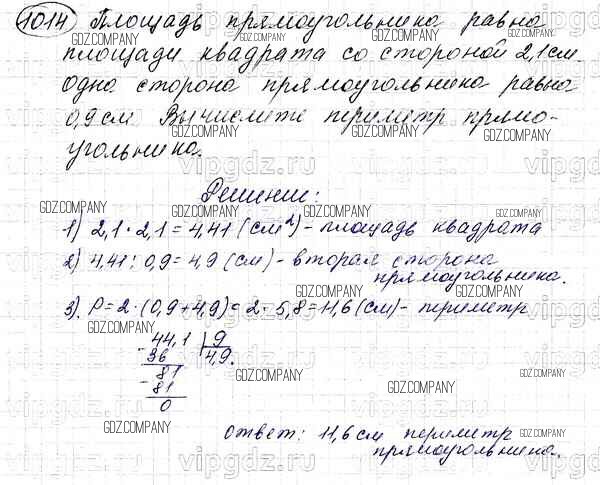 1014 Площадь прямоугольника равна
площади квадрата со стороной 2,1 см.
Одна сторона прямоугольника равна
0,9 см Вычислите периметр прямо-
угольника.
Решение:
1) 2,1 · 2,1 = 4,41 (см²) - площадь квадрата
2) 4,41 : 0,9 = 4,9 (см) - вторая сторона
прямоугольника.
3). P = 2 · (0,9 + 4,9) = 2 · 5,8 = 11,6 (см) - периметр
44,1 9
- 36 4,9.
81
- 81
0
Ответ: 11,6 см периметр
прямоугольника.
GDZ.COMPANY
vipgdz.ru